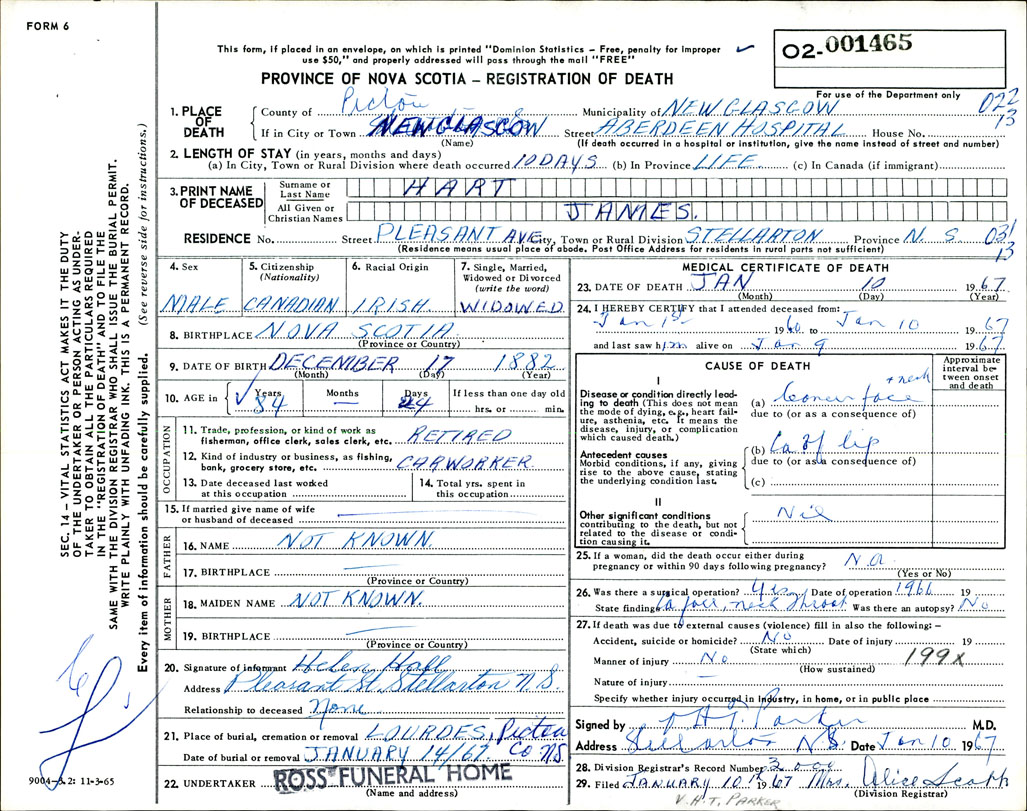 FORM 6
This form, if placed in an envelope, on which is printed "Dominion Statistics – Free, penalty for improper
use $50," and properly addressed will pass through the mail "FREE"
02-001465
PROVINCE OF NOVA SCOTIA – REGISTRATION OF DEATH
For use of the Department only
022
13
1. PLACE OF DEATH
County of Pictou Municipality of NEW GLASGOW
If in City or Town NEW GLASGOW Street ABERDEEN HOSPITAL House No.
(Name) (If death occurred in a hospital or institution, give the name instead of street and number)
2. LENGTH OF STAY (in years, months and days)
(a) In City, Town or Rural Division where death occurred 10 DAYS (b) In Province LIFE (c) In Canada (if immigrant)
3. PRINT NAME OF DECEASED
Surname or Last Name HART
All Given or Christian Names JAMES.
RESIDENCE No. Street PLEASANT AVE City, Town or Rural Division STELLARTON Province N. S. 031
13
(Residence means usual place of abode. Post Office Address for residents in rural parts not sufficient)
4. Sex
MALE
5. Citizenship
(Nationality)
CANADIAN
6. Racial Origin
IRISH
7. Single, Married,
Widowed or Divorced
(write the word)
WIDOWED
8. BIRTHPLACE NOVA SCOTIA
(Province or Country)
9. DATE OF BIRTH DECEMBER 17 1882
(Month) (Day) (Year)
10. AGE in
Years 84
Months –
Days 24
If less than one day old
hrs. or min.
OCCUPATION
11. Trade, profession, or kind of work as
fisherman, office clerk, sales clerk, etc. RETIRED
12. Kind of industry or business, as fishing,
bank, grocery store, etc. CARWORKER.
13. Date deceased last worked
at this occupation
14. Total yrs. spent in
this occupation
15. If married give name of wife
or husband of deceased
FATHER
16. NAME NOT KNOWN.
17. BIRTHPLACE
(Province or Country)
MOTHER
18. MAIDEN NAME NOT KNOWN.
19. BIRTHPLACE
(Province or Country)
20. Signature of informant Helen Hall
Address Pleasant St. Stellarton N.S.
Relationship to deceased None
21. Place of burial, cremation or removal LOURDES, Pictou
Date of burial or removal JANUARY 14/67 Co N.S.
22. UNDERTAKER ROSS FUNERAL HOME
(Name and address)
MEDICAL CERTIFICATE OF DEATH
23. DATE OF DEATH JAN 10 1967
(Month) (Day) (Year)
24. I HEREBY CERTIFY that I attended deceased from:
Jan 1st 1960 to Jan 10 1967
and last saw him alive on Jan 9 1967
CAUSE OF DEATH
Approximate interval between onset and death
I
Disease or condition directly leading to death (This does not mean
the mode of dying, e.g., heart failure, asthenia, etc. It means the
disease, injury, or complication
which caused death.)
(a) Cancer face + neck
due to (or as a consequence of)
Antecedent causes
Morbid conditions, if any, giving
rise to the above cause, stating
the underlying condition last.
(b) Ca of lip
due to (or as a consequence of)
(c)
II
Other significant conditions
contributing to the death, but not
related to the disease or condition causing it.
Nil
25. If a woman, did the death occur either during
pregnancy or within 90 days following pregnancy?
(Yes or No)
26. Was there a surgical operation? Yes Date of operation 1966 19
State findings Ca face, neck throat Was there an autopsy? No
27. If death was due to external causes (violence) fill in also the following: –
Accident, suicide or homicide? No Date of injury 19
(State which)
Manner of injury No 199X
(How sustained)
Nature of injury
Specify whether injury occurred in Industry, in home, or in public place
Signed by V H T Parker M.D.
Address Stellarton N.S. Date Jan 10 1967
28. Division Registrar's Record Number
29. Filed JANUARY 10th 1967 Mrs. Alice Scott
(Division Registrar)
V. H. T. PARKER
SEC. 14 – VITAL STATISTICS ACT MAKES IT THE DUTY
OF THE UNDERTAKER OR PERSON ACTING AS UNDER-
TAKER TO OBTAIN ALL THE PARTICULARS REQUIRED
IN THE "REGISTRATION OF DEATH" AND TO FILE THE
SAME WITH THE DIVISION REGISTRAR WHO SHALL ISSUE THE BURIAL PERMIT.
WRITE PLAINLY WITH UNFADING INK. THIS IS A PERMANENT RECORD.
Every item of information should be carefully supplied. (See reverse side for instructions.)
9004-8.2: 11-3-65